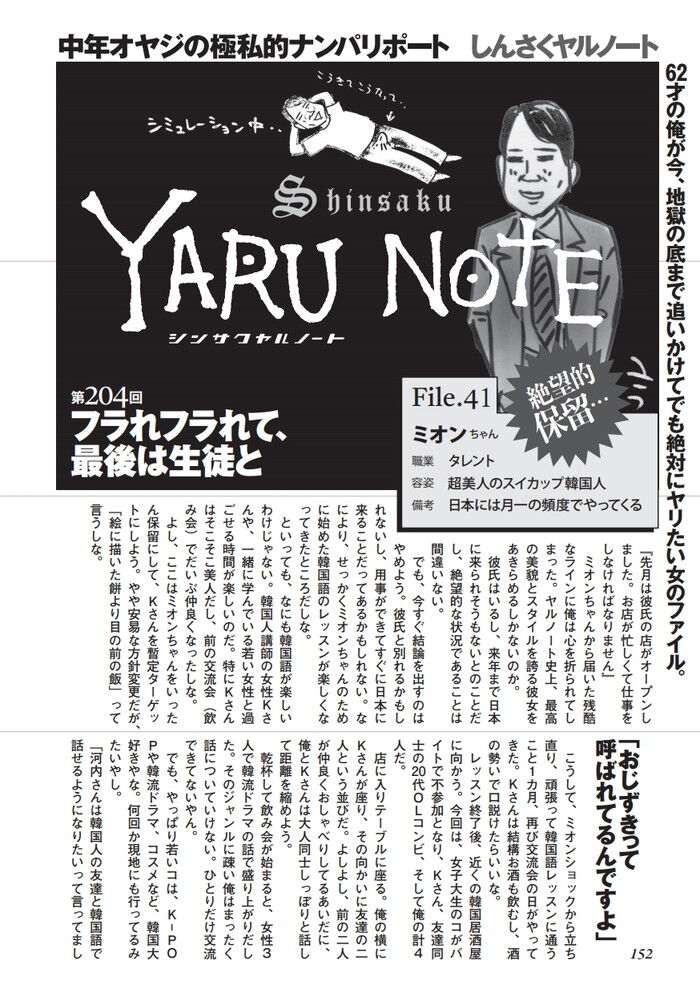 中年オヤジの極私的ナンパリポート しんさくヤルノート
62才の俺が今、地獄の底まで追いかけてでも絶対にヤリたい女のファイル。
こうきてこうなって・・
シミュレーション中・・
Shinsaku
YARU NOTE
シンサクヤルノート
第204回
フラれフラれて、
最後は生徒と
File.41
絶望的
保留…
ミオンちゃん
職業 タレント
容姿 超美人のスイカップ韓国人
備考 日本には月一の頻度でやってくる
『先月は彼氏の店がオープンし
ました。お店が忙しくて仕事を
しなければなりません』
ミオンちゃんから届いた残酷
なラインに俺は心を折られてし
まった。ヤルノート史上、最高
の美貌とスタイルを誇る彼女を
あきらめるしかないのか。
彼氏はいるし、来年まで日本
に来られそうもないとのことだ
し、絶望的な状況であることは
間違いない。
でも、今すぐ結論を出すのは
やめよう。彼氏と別れるかもし
れないし、用事ができてすぐに日本に
来ることだってあるかもしれない。な
により、せっかくミオンちゃんのため
に始めた韓国語のレッスンが楽しくな
ってきたところだしな。
といっても、なにも韓国語が楽しい
わけじゃない。韓国人講師の女性Kさ
んや、一緒に学んでいる若い女性と過
ごせる時間が楽しいのだ。特にKさん
はそこそこ美人だし、前の交流会（飲
み会）でだいぶ仲良くなったしな。
よし、ここはミオンちゃんをいった
ん保留にして、Kさんを暫定ターゲッ
トにしよう。やや安易な方針変更だが、
「絵に描いた餅より目の前の飯」って
言うしな。
「おじずきって
呼ばれてるんですよ」
こうして、ミオンショックから立ち
直り、頑張って韓国語レッスンに通う
こと1カ月、再び交流会の日がやって
きた。Kさんは結構お酒も飲むし、酒
の勢いで口説けたらいいな。
レッスン終了後、近くの韓国居酒屋
に向かう。今回は、女子大生のコがバ
イトで不参加となり、Kさん、友達同
士の20代OLコンビ、そして俺の計4
人だ。
店に入りテーブルに座る。俺の横に
Kさんが座り、その向かいに友達の二
人という並びだ。よしよし、前の二人
が仲良くおしゃべりしてるあいだに、
俺とKさんは大人同士しっぽりと話し
て距離を縮めよう。
乾杯して飲み会が始まると、女性3
人で韓流ドラマの話で盛り上がりだし
た。そのジャンルに疎い俺はまったく
話についていけない。ひとりだけ交流
できてないやん。
でも、やっぱり若いコは、K-PO
Pや韓流ドラマ、コスメなど、韓国大
好きやな。何回か現地にも行ってるみ
たいやし。
「河内さんは韓国人の友達と韓国語で
話せるようになりたいって言ってまし
152